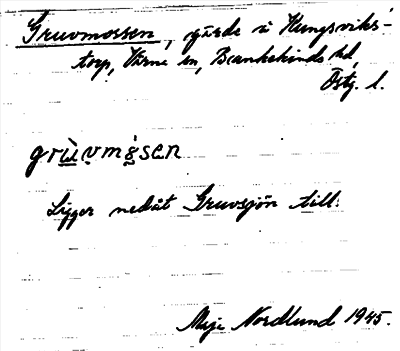 Gruvmossen, gärde å Kungsviks-
torp, Värna sn, Bankekinds hd,
Östg. l.
grùvmo̊sen
Ligger nedåt Gruvsjön till.
Maja Nordlund 1945.